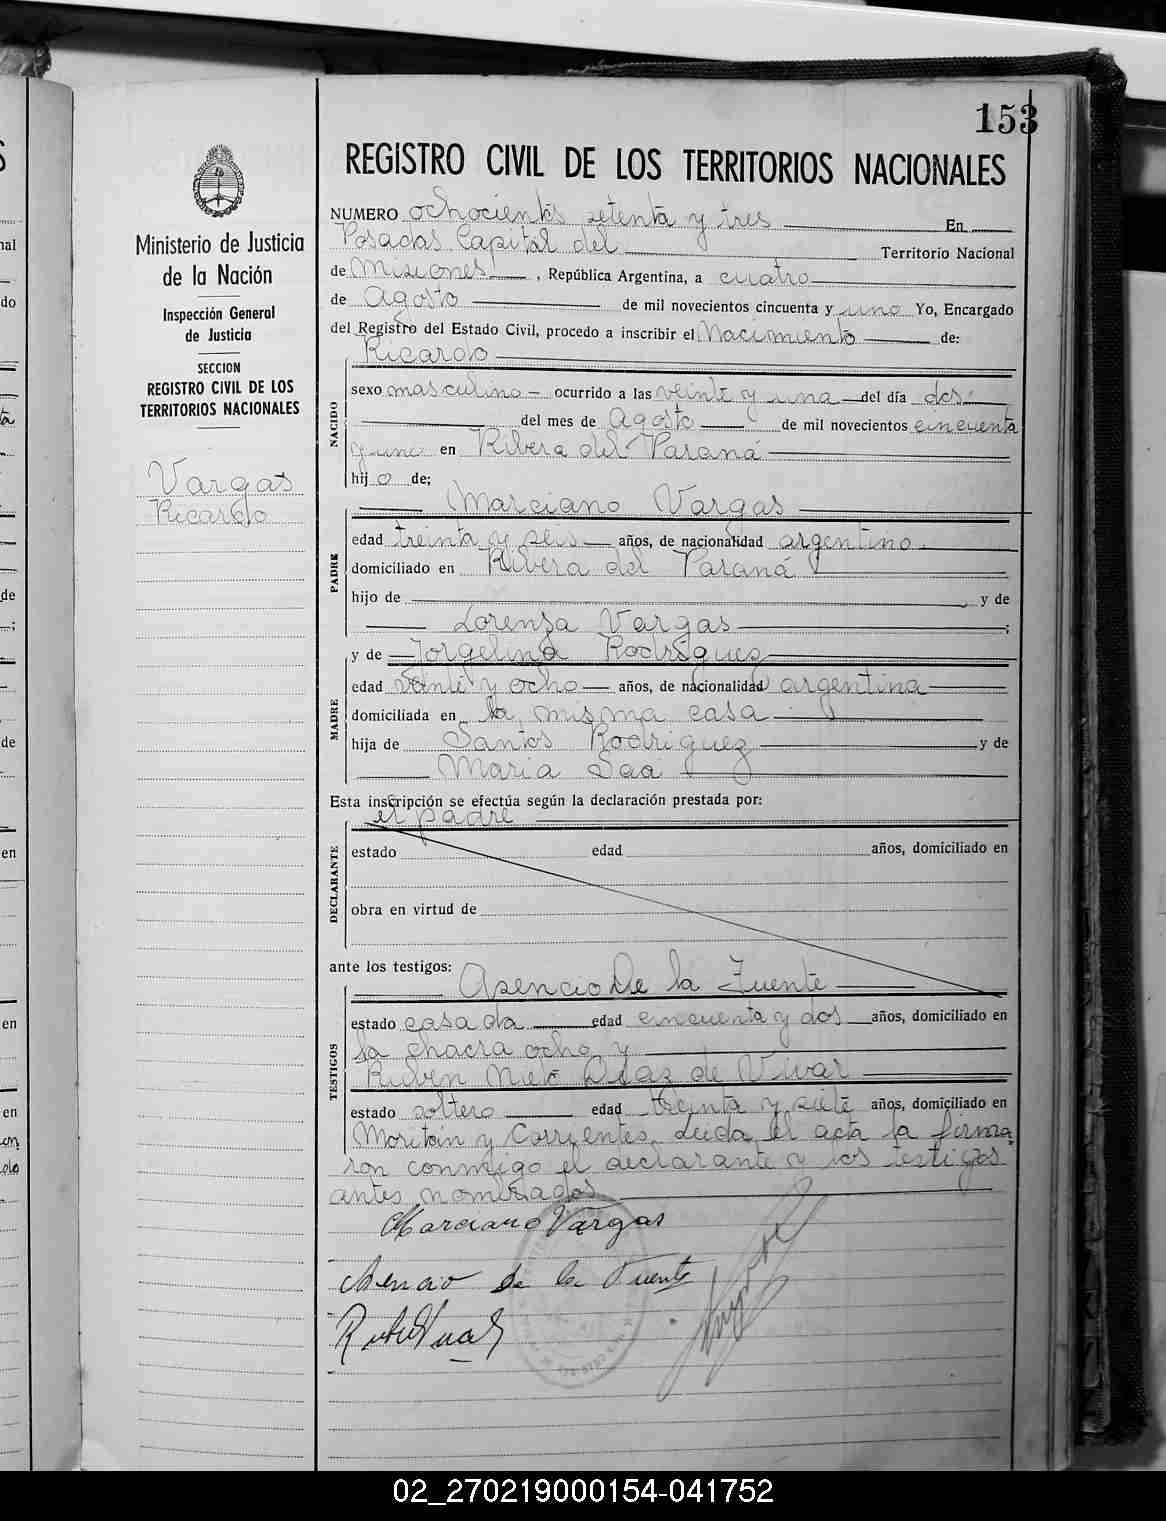 153
REGISTRO CIVIL DE LOS TERRITORIOS NACIONALES
Ministerio de Justicia
de la Nación
Inspección General
de Justicia
SECCION
REGISTRO CIVIL DE LOS
TERRITORIOS NACIONALES
Vargas
Ricardo
NUMERO ochocientos setenta y tres En
Posadas Capital del Territorio Nacional
de Misiones, República Argentina, a cuatro
de Agosto de mil novecientos cincuenta y uno Yo, Encargado
del Registro del Estado Civil, procedo a inscribir el Nacimiento de:
Ricardo
NACIDO
sexo masculino - ocurrido a las veinte y una del día dos
del mes de Agosto de mil novecientos cincuenta
y uno en Ribera del Paraná
hijo de;
Marciano Vargas
PADRE
edad treinta y seis años, de nacionalidad argentino
domiciliado en Ribera del Paraná
hijo de y de
Lorenza Vargas ;
y de Jorgelina Rodriguez
MADRE
edad veinte y ocho años, de nacionalidad argentina
domiciliada en la misma casa
hija de Santos Rodriguez y de
Maria Saa
Esta inscripción se efectúa según la declaración prestada por:
el padre
DECLARANTE
estado edad años, domiciliado en
obra en virtud de
ante los testigos:
Asencio De la Fuente
TESTIGOS
estado casada edad cincuenta y dos años, domiciliado en
la chacra ocho y
Ruben Diaz de Vivar
estado soltero edad treinta y siete años, domiciliado en
y Corrientes. Leida el acta la firma
ron conmigo el declarante y los testigos
antes nombrados
Marciano Vargas
Asencio de la Fuente
02_270219000154-041752